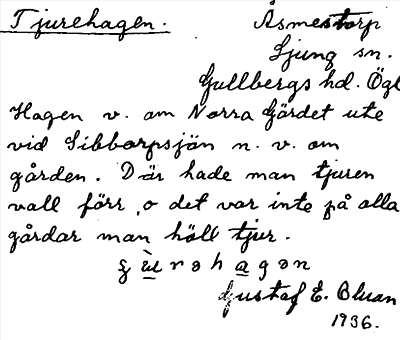 Tjurehagen. Åsmestorp
Ljung sn.
Gullbergs hd. Ögl
Hagen v. om Norra Gärdet ute
vid Sibborpsjön n. v. om
gården. Där hade man tjuren
vall förr, o det var inte på alla
gårdar man höll tjur.
Gustaf E. 
1936.